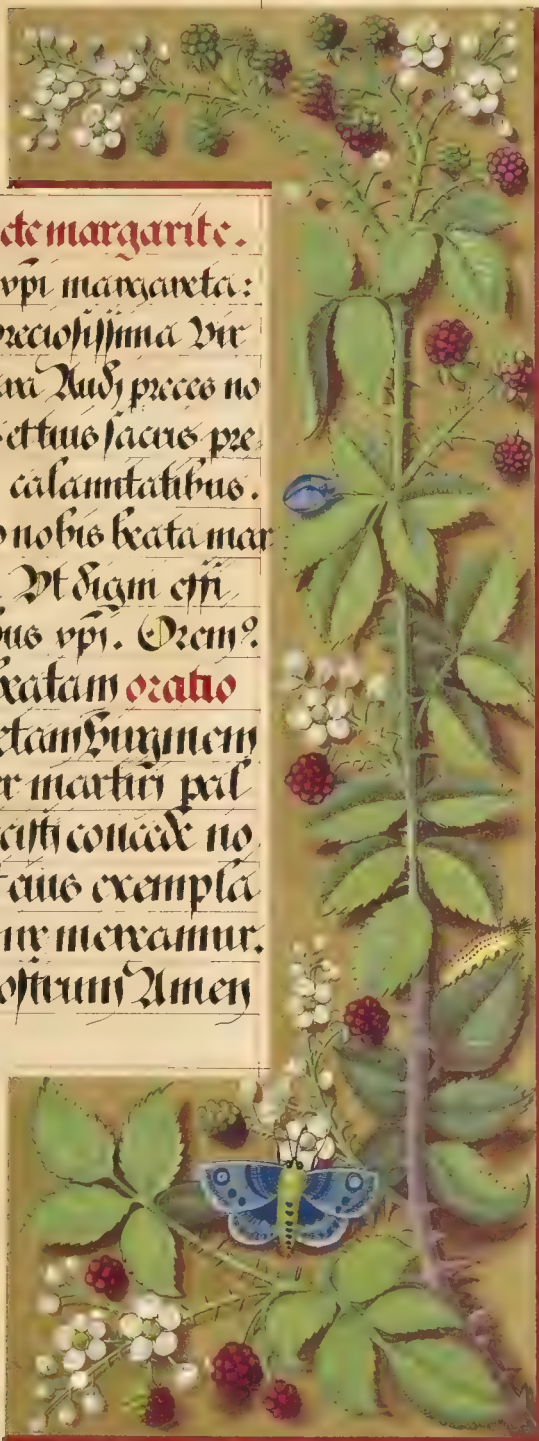 cte margarite.
xpi margareta:
preciosissima Vir
Audi preces no
et tuis sacris pre
calamitatibus.
nobis beata mar
Vt digni effi
xpi. Orem9
beatam oratio
Virginem
martirii pal
concede no
eius exempla
mereamur.
ostrum Amen